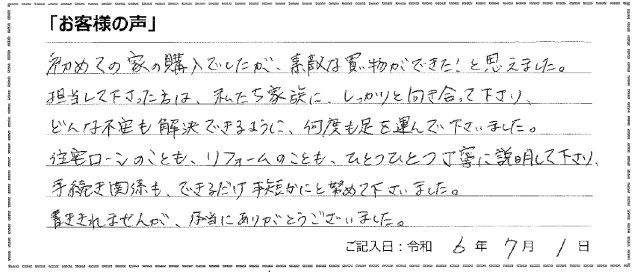 「お客様の声」
初めての家の購入でしたが、素敵な買い物ができた！と思えました。
担当して下さった方は、私たち家族に、しっかりと向き合って下さり、
どんな不安も解決できるように、何度も足を運んで下さいました。
住宅ローンのことも、リフォームのことも、ひとつひとつ丁寧に説明して下さり、
手続き関係も、できるだけ手短かにと努めて下さいました。
書ききれませんが、本当にありがとうございました。
ご記入日：令和 6 年 7 月 1 日